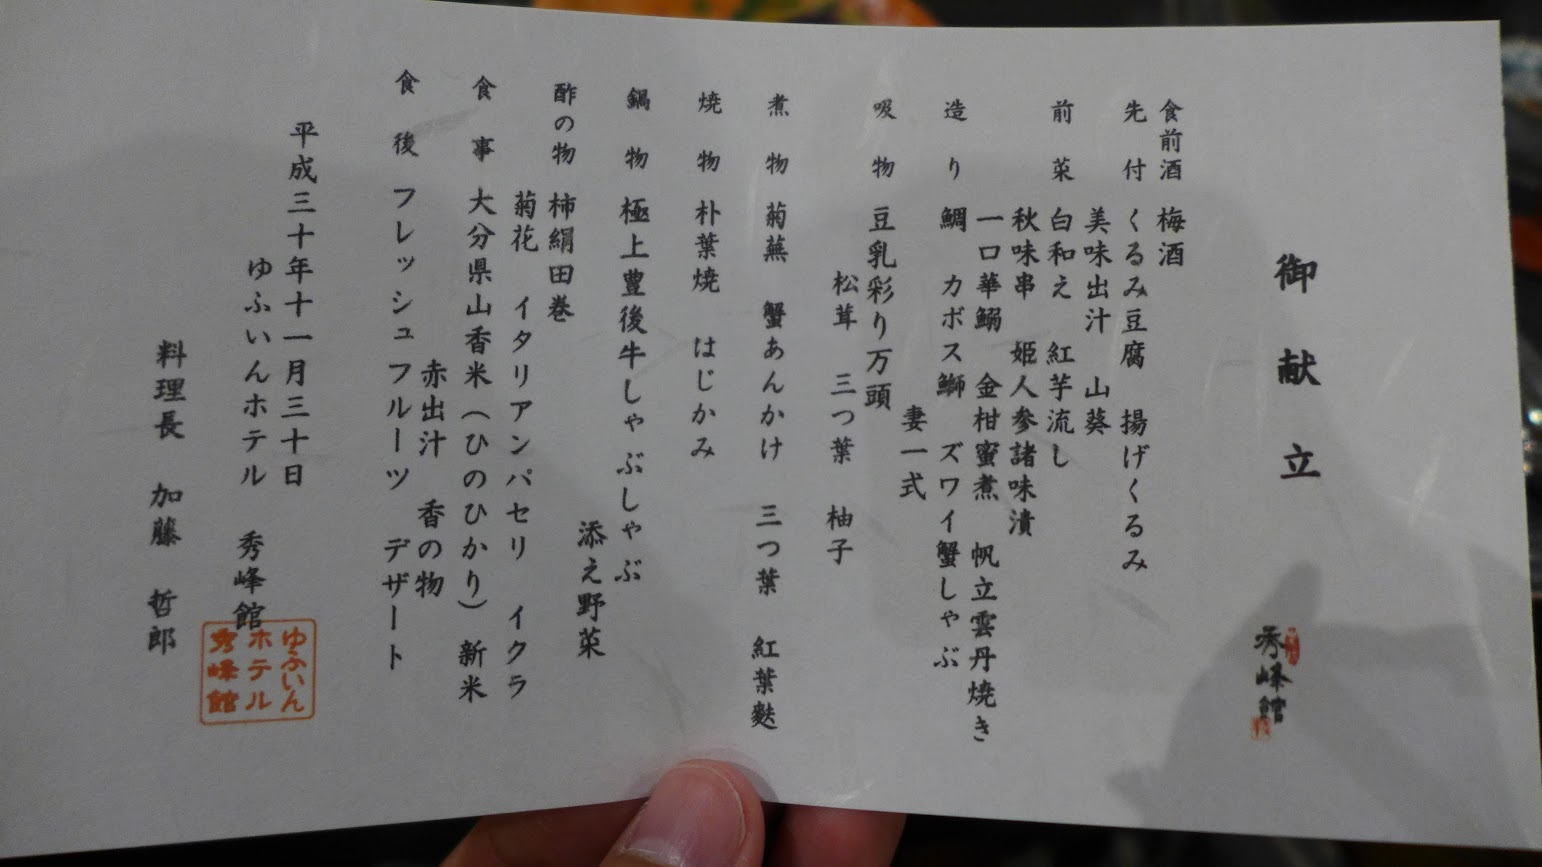 御献立
秀峰館
食前酒 梅酒
先付 くるみ豆腐 揚げくるみ
美味出汁 山葵
前菜 白和え 紅芋流し
秋味串 姫人参諸味漬
一口華鰯 金柑蜜煮 帆立雲丹焼き
造り 鯛 カボス鰤 ズワイ蟹しゃぶ
妻一式
吸物 豆乳彩り万頭
松茸 三つ葉 柚子
煮物 菊蕪 蟹あんかけ 三つ葉 紅葉麩
焼物 朴葉焼 はじかみ
鍋物 極上豊後牛しゃぶしゃぶ
添え野菜
酢の物 柿絹田巻
菊花 イタリアンパセリ イクラ
食事 大分県山香米(ひのひかり) 新米
赤出汁 香の物
食後 フレッシュフルーツ デザート
平成三十年十一月三十日
ゆふいんホテル 秀峰館
料理長 加藤 哲郎
ゆふいん
ホテル
秀峰館